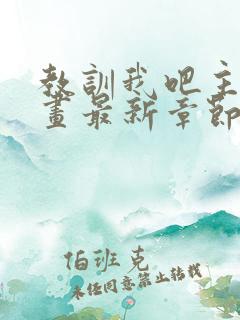 教訓我吧主
畫最新章節
伯班克
未经同意禁止转载